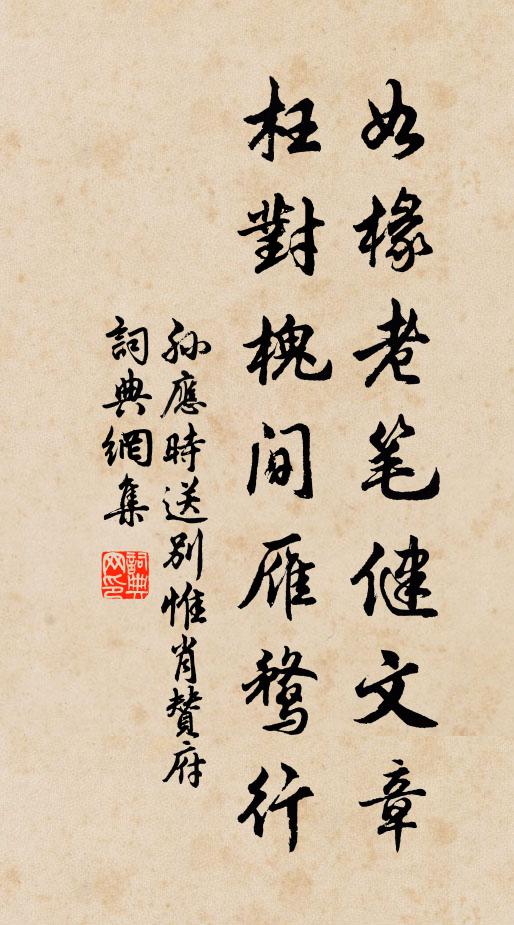 如椽老笔健文章
枉對槐間雁鶩行
孙應時送别惟肖贊府
詞典網集
詞典网印